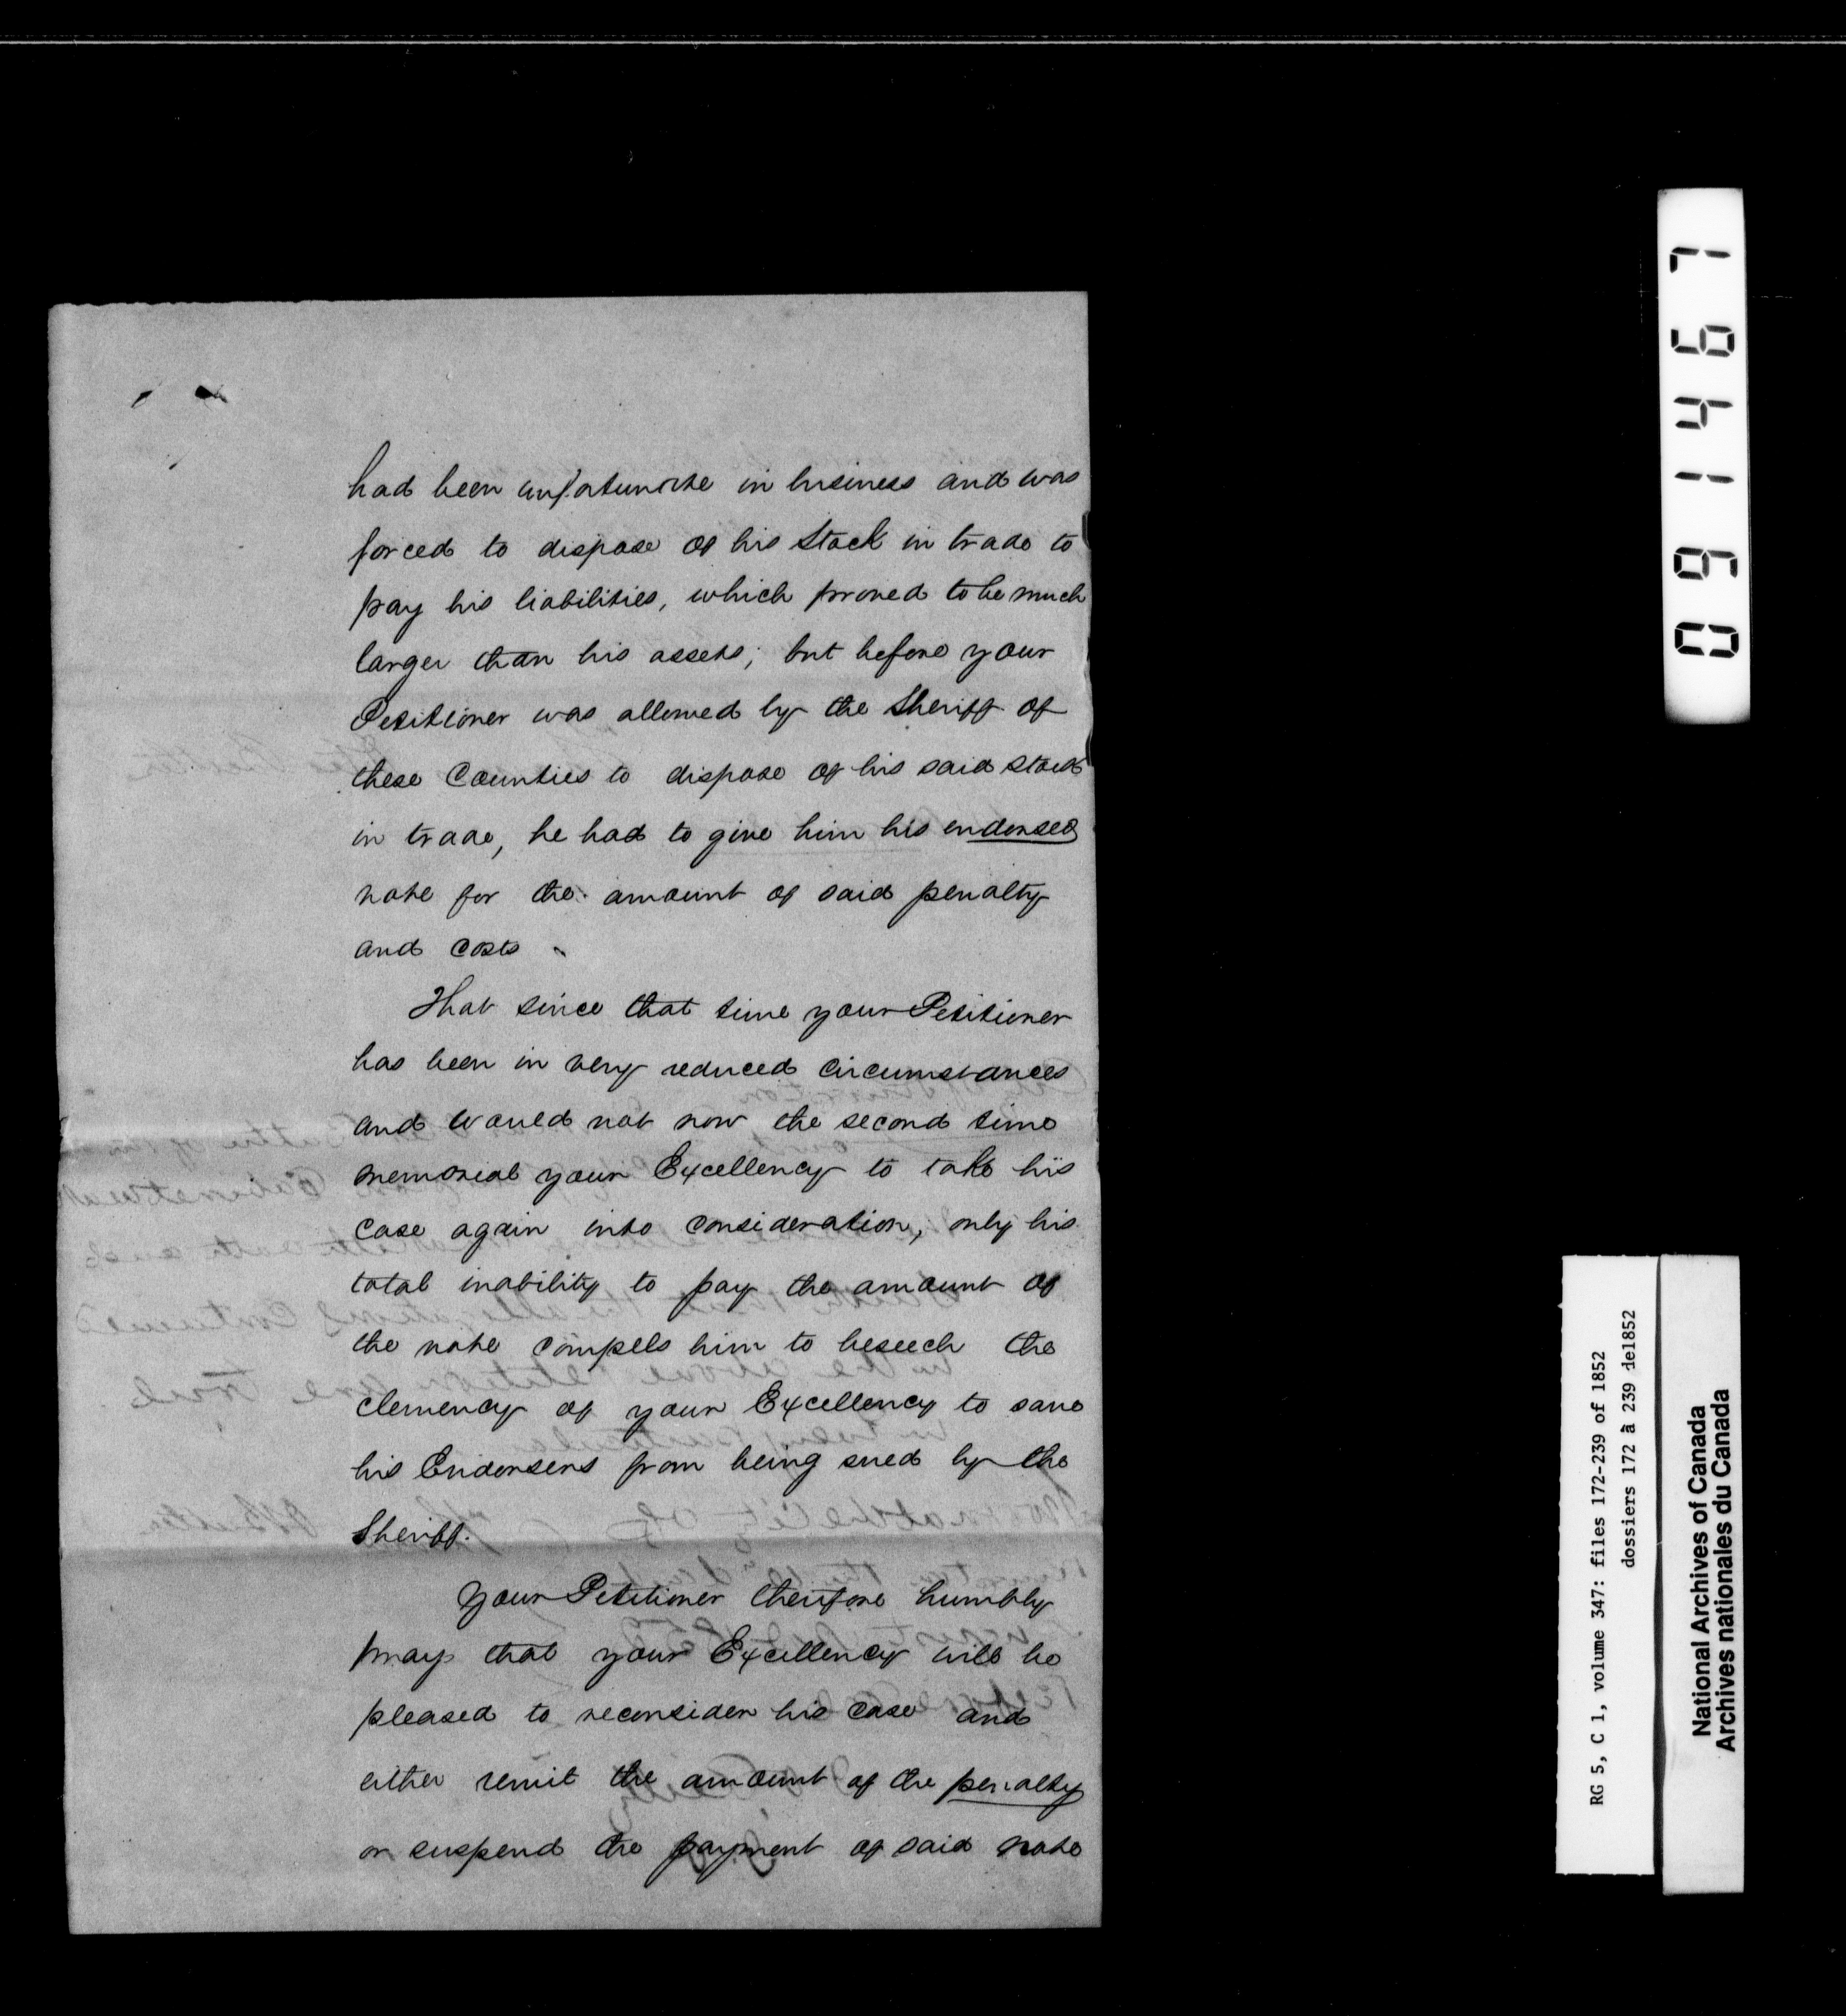 had been unfortunate in business and was
forced to dispose of his Stock in trade to
pay his liabilities, which proved to be much
larger than his assets; but before your
Petitioner was allowed by the Sheriff of
these Counties to dispose of his said stock
in trade, he had to give him his endorsed
note for the amount of said penalty
and costs
That since that time your Petitioner
has been in very reduced circumstances
and would not now the second time
memorial your Excellency to take his
case again into consideration, only his
total inability to pay the amount of
the note compels him to beseech the
clemency of your Excellency to save
his Endorsers from being sued by the
Sheriff.
Your Petitioner therefore humbly
pray that your Excellency will be
pleased to reconsider his case and
either remit the amount of the penalty
or suspend the payment of said note
091467
RG 5, C 1, volume 347: files 172-239 of 1852
dossiers 172 à 239 de1852
National Archives of Canada
Archives nationales du Canada